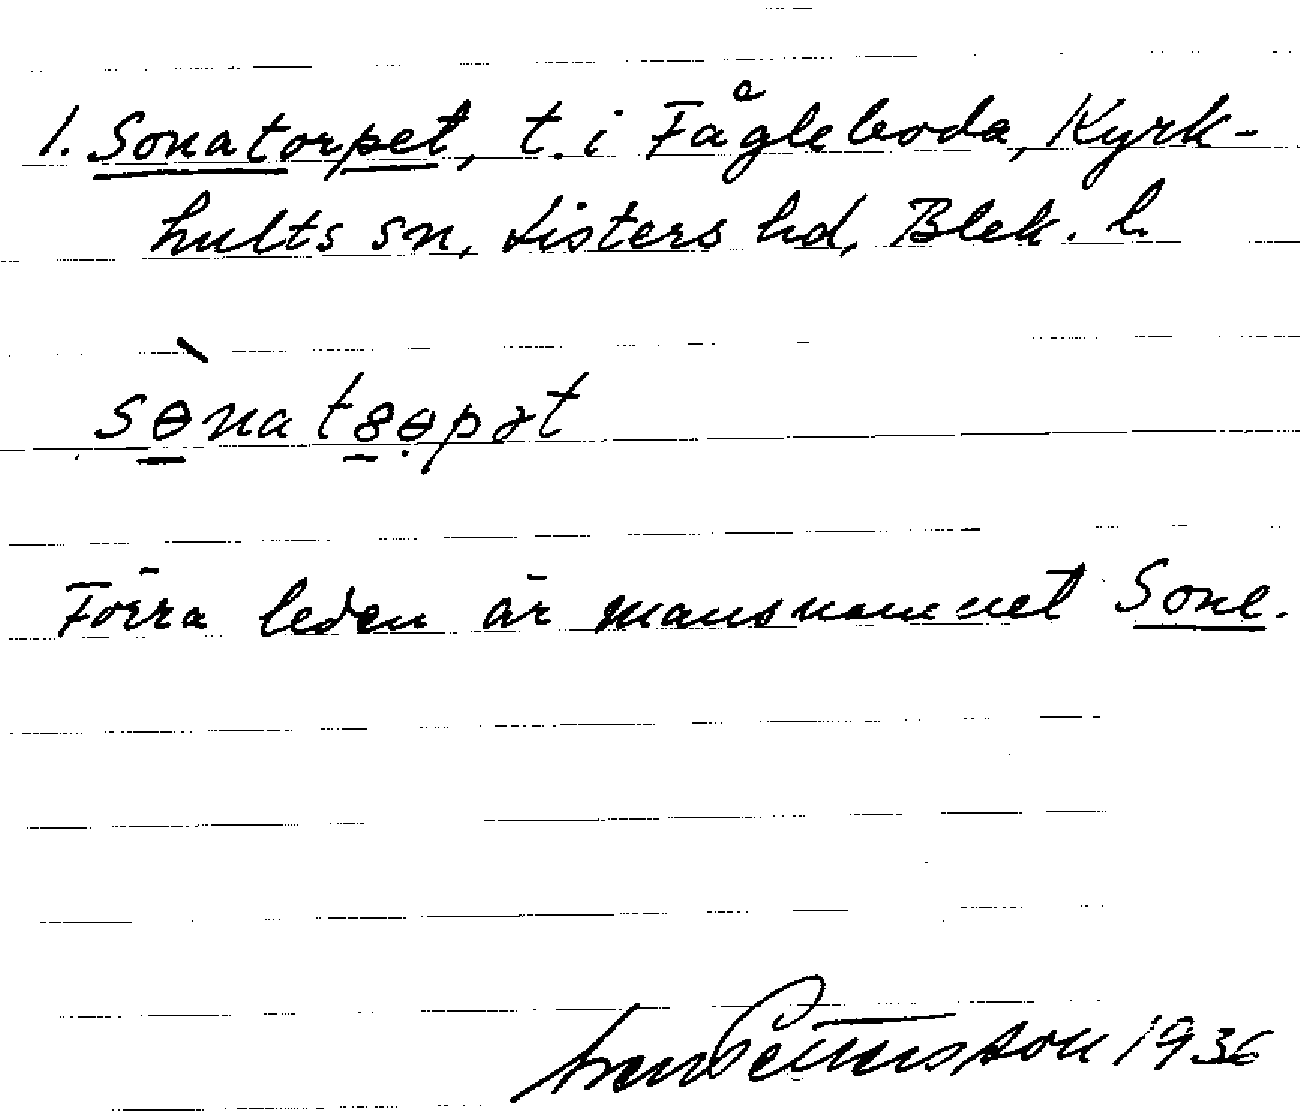 1. Sonatorpet, t. i Fågleboda, Kyrk-
hults sn, Listers hd, Blek. l.
sɵ̀natȣɵpət
Förra leden är mansnamnet Sone.
Pettersson 1936